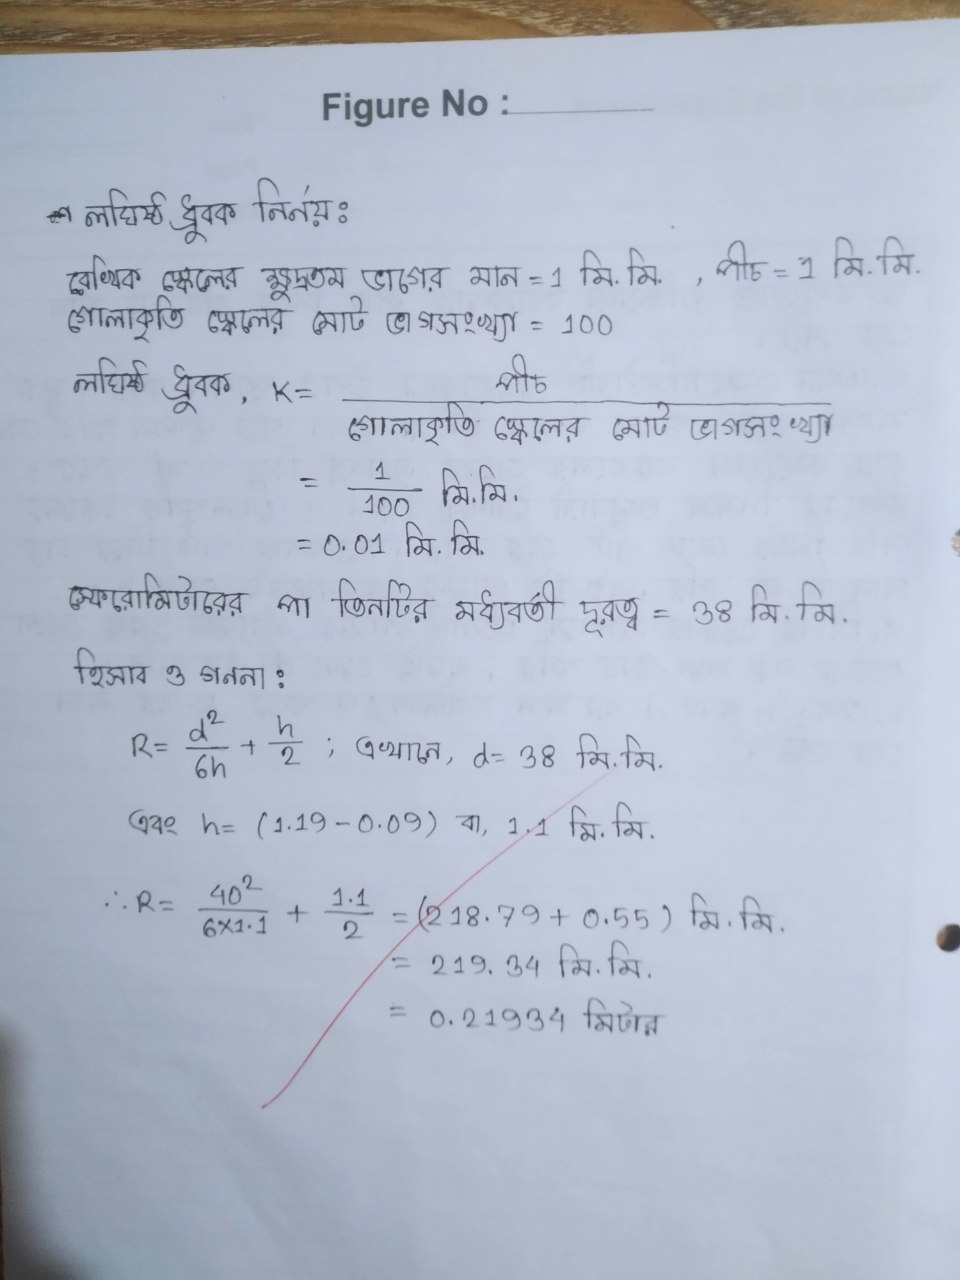 Figure No :
লঘিষ্ঠ ধ্রুবক নির্ণয়ঃ
রৈখিক স্কেলের ক্ষুদ্রতম ভাগের মান = 1 মি.মি. , পীচ = 1 মি.মি.
গোলাকৃতি স্কেলের মোট ভাগসংখ্যা = 100
লঘিষ্ঠ ধ্রুবক, K = পীচ
গোলাকৃতি স্কেলের মোট ভাগসংখ্যা
= 1/100 মি.মি.
= 0.01 মি.মি.
স্ফেরোমিটারের পা তিনটির মধ্যবর্তী দূরত্ব = 38 মি.মি.
হিসাব ও গননা :
R = d²/6h + h/2 ; এখানে, d = 38 মি.মি.
এবং h = (1.19 - 0.09) বা, 1.1 মি.মি.
∴ R = 40²/6×1.1 + 1.1/2 = (218.79 + 0.55) মি.মি.
= 219.34 মি.মি.
= 0.21934 মিটার